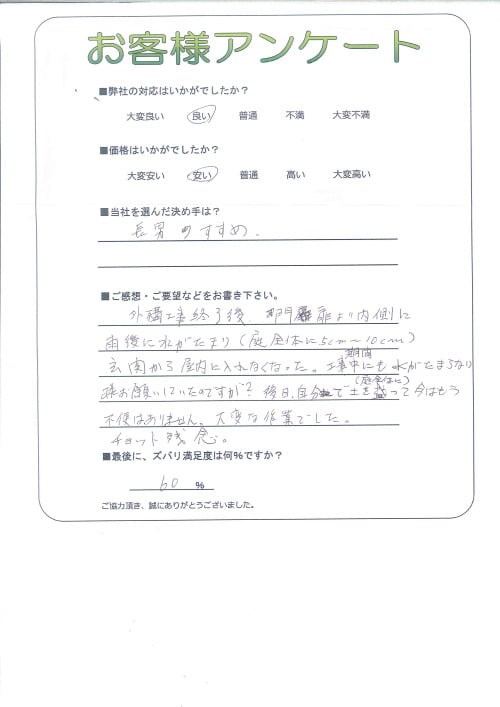 お客様アンケート
■弊社の対応はいかがでしたか？
大変良い 良い 普通 不満 大変不満
■価格はいかがでしたか？
大変安い 安い 普通 高い 大変高い
■当社を選んだ決め手は？
長男のすすめ.
■ご感想・ご要望などをお書き下さい。
外構工事終了後、門扉より内側に
雨後に水がたまり(庭全体に5cm～10cm)
玄関から屋内に入れなくなった。工事期間中にも水がたまるなり
お願いしていたのですが？後日、自分で(庭全体に)土を盛って今はもう
不便はありません。大変な作業でした。
チョット残念。
■最後に、ズバリ満足度は何%ですか？
60 %
ご協力頂き、誠にありがとうございました。